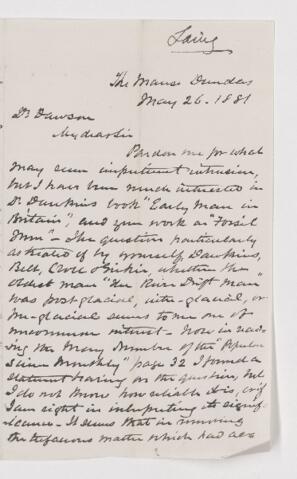 Laing
The Manse Dundas
May 26. 1881
Dr Dawson
My dear Sir
Pardon me for what
may seem impertinent intrusion,
but I have been much interested in
Dr Dawkins book "Early Man in
Britain", and your work as "Fossil
Men" - The question particularly
as treated of by yourself, Dawkins,
Belt, Croll &, whether the
oldest man "the River Drift Man"
was post-glacial, inter-glacial, or
pre-glacial seems to me one of
uncommon interest - Now in read
ing the May Number of the "Popular
Science Monthly" page 32 I found a
statement bearing on the question, but
I do not know how reliable it is, or if
I am right in interpreting its signif
icance - It seems that in removing
the matter which had acc